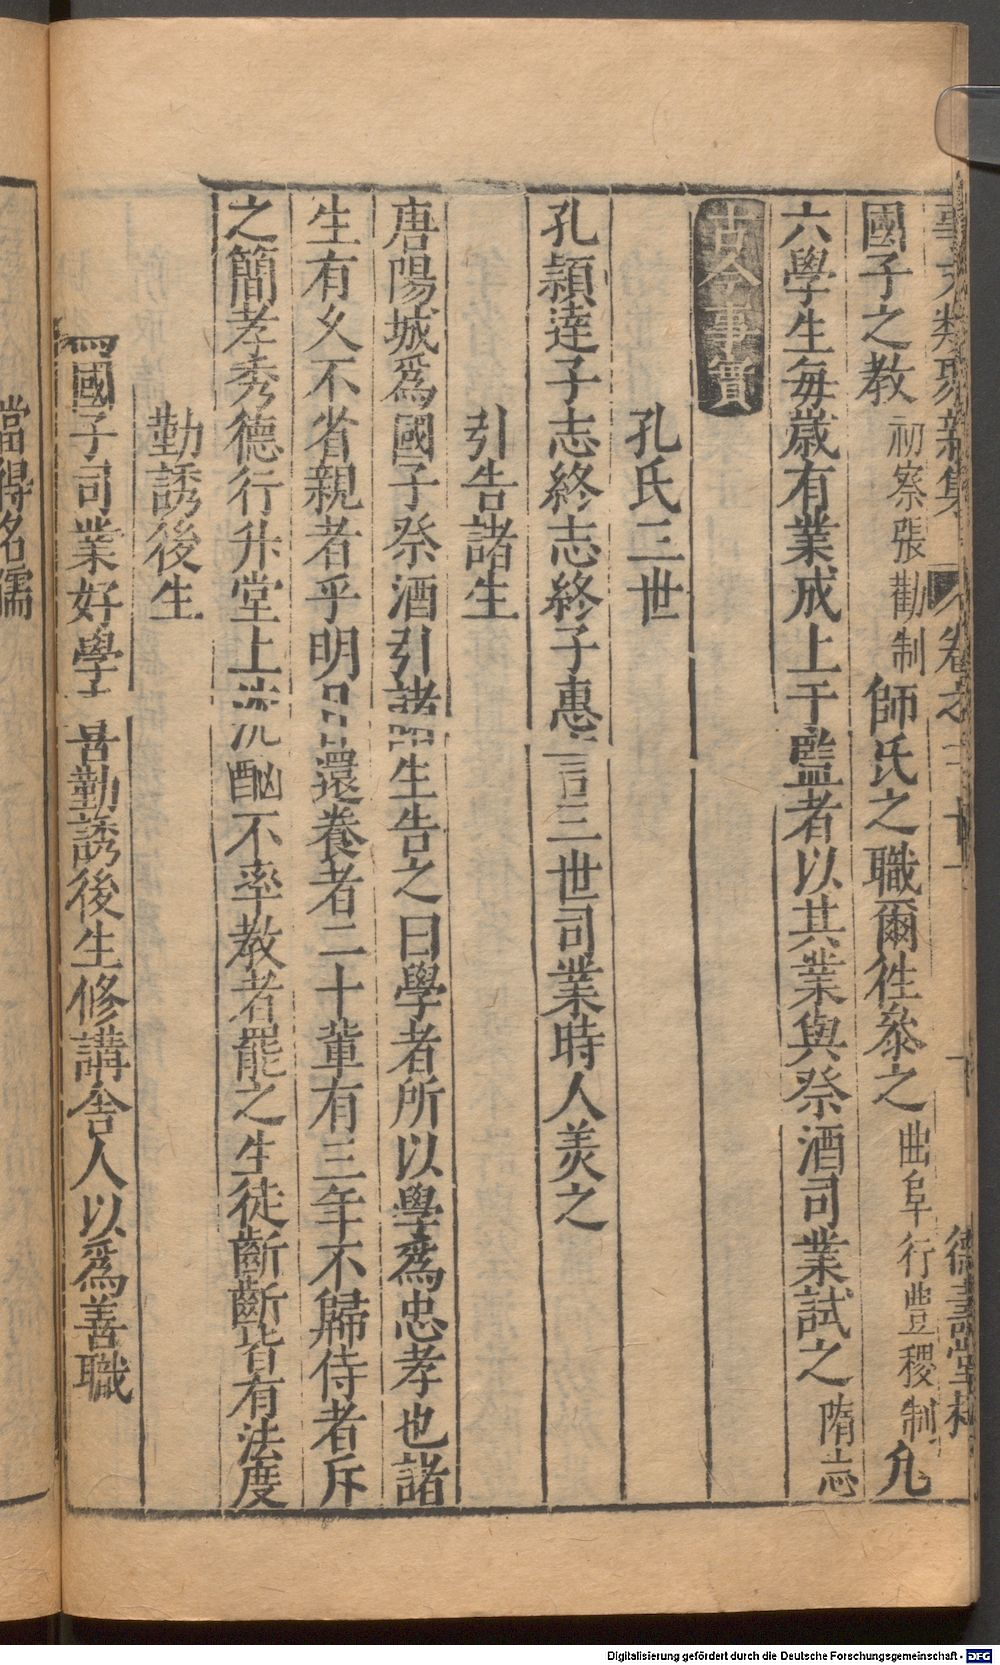 事文類聚新集 卷之三十一 德壽堂梓
國子之教 初察張勸制 師氏之職爾徃叅之 曲阜行豊稷制 凡
六學生每歲有業成上于監者以其業與祭酒司業試之 隋志
古今事實
孔氏三世
孔穎達子志終志終子惠言三世司業時人羙之
引告諸生
唐陽城爲國子祭酒引諸生告之曰學者所以學爲忠孝也諸
生有乆不省親者乎明日還養者二十軰有三年不歸侍者斥
之簡孝秀德行升堂上沈酗不率教者罷之生徒齗齗皆有法度
勤誘後生
國子司業好學 勤誘後生修講舍人以爲善職
當得名儒
Digitalisierung gefördert durch die Deutsche Forschungsgemeinschaft - DFG